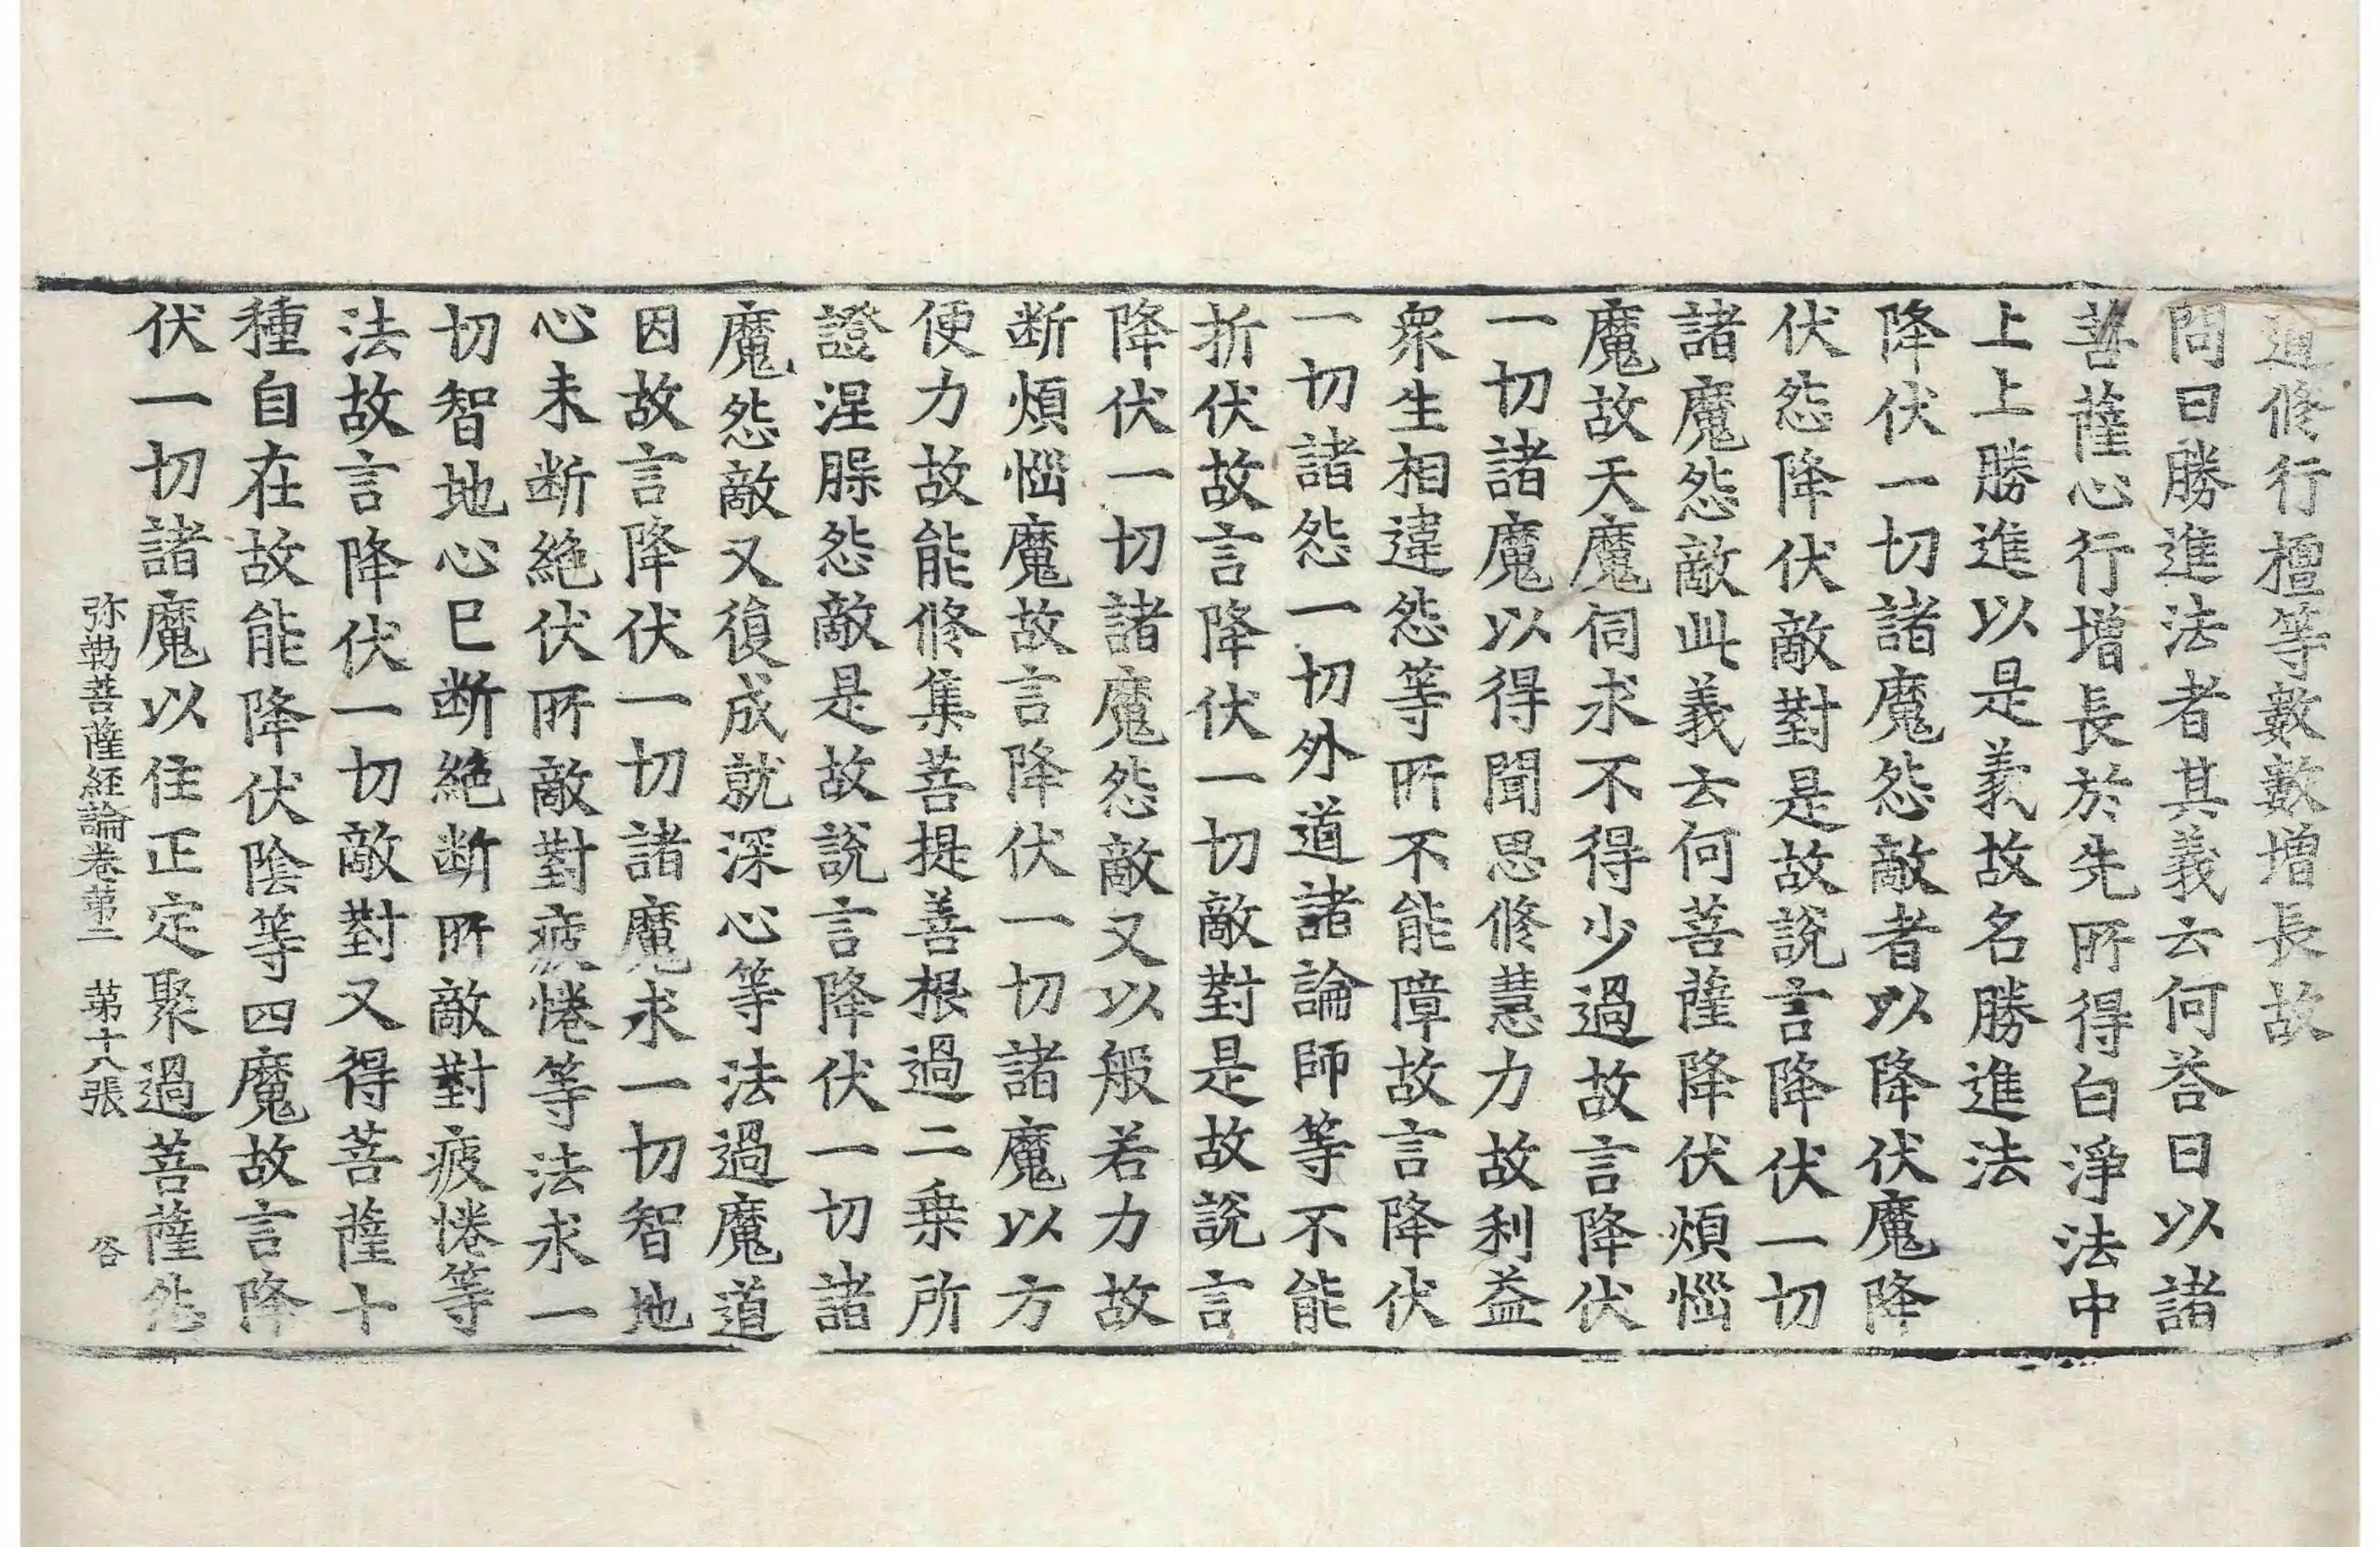 道修行檀等數數增長故
問曰勝進法者其義云何荅曰以諸
菩薩心行增長於先所得白淨法中
上上勝進以是義故名勝進法
降伏一切諸魔怨敵者以降伏魔降
伏怨降伏敵對是故說言降伏一切
諸魔怨敵此義云何菩薩降伏煩惱
魔故天魔伺求不得少過故言降伏
一切諸魔以得聞思修慧力故利益
衆生相違怨等所不能障故言降伏
一切諸怨一切外道諸論師等不能
折伏故言降伏一切敵對是故說言
降伏一切諸魔怨敵又以般若力故
断煩惱魔故言降伏一切諸魔以方
便力故能修集菩提善根過二乗所
證涅槃怨敵是故說言降伏一切諸
魔怨敵又復成就深心等法過魔道
因故言降伏一切諸魔求一切智地
心未断絶伏所敵對疲惓等法求一
切智地心巳断絶断所敵對疲惓等
法故言降伏一切敵對又得菩薩十
種自在故能降伏陰等四魔故言降
伏一切諸魔以住正定聚過菩薩怨
弥勒菩薩経論卷第二　第十八張　㕣